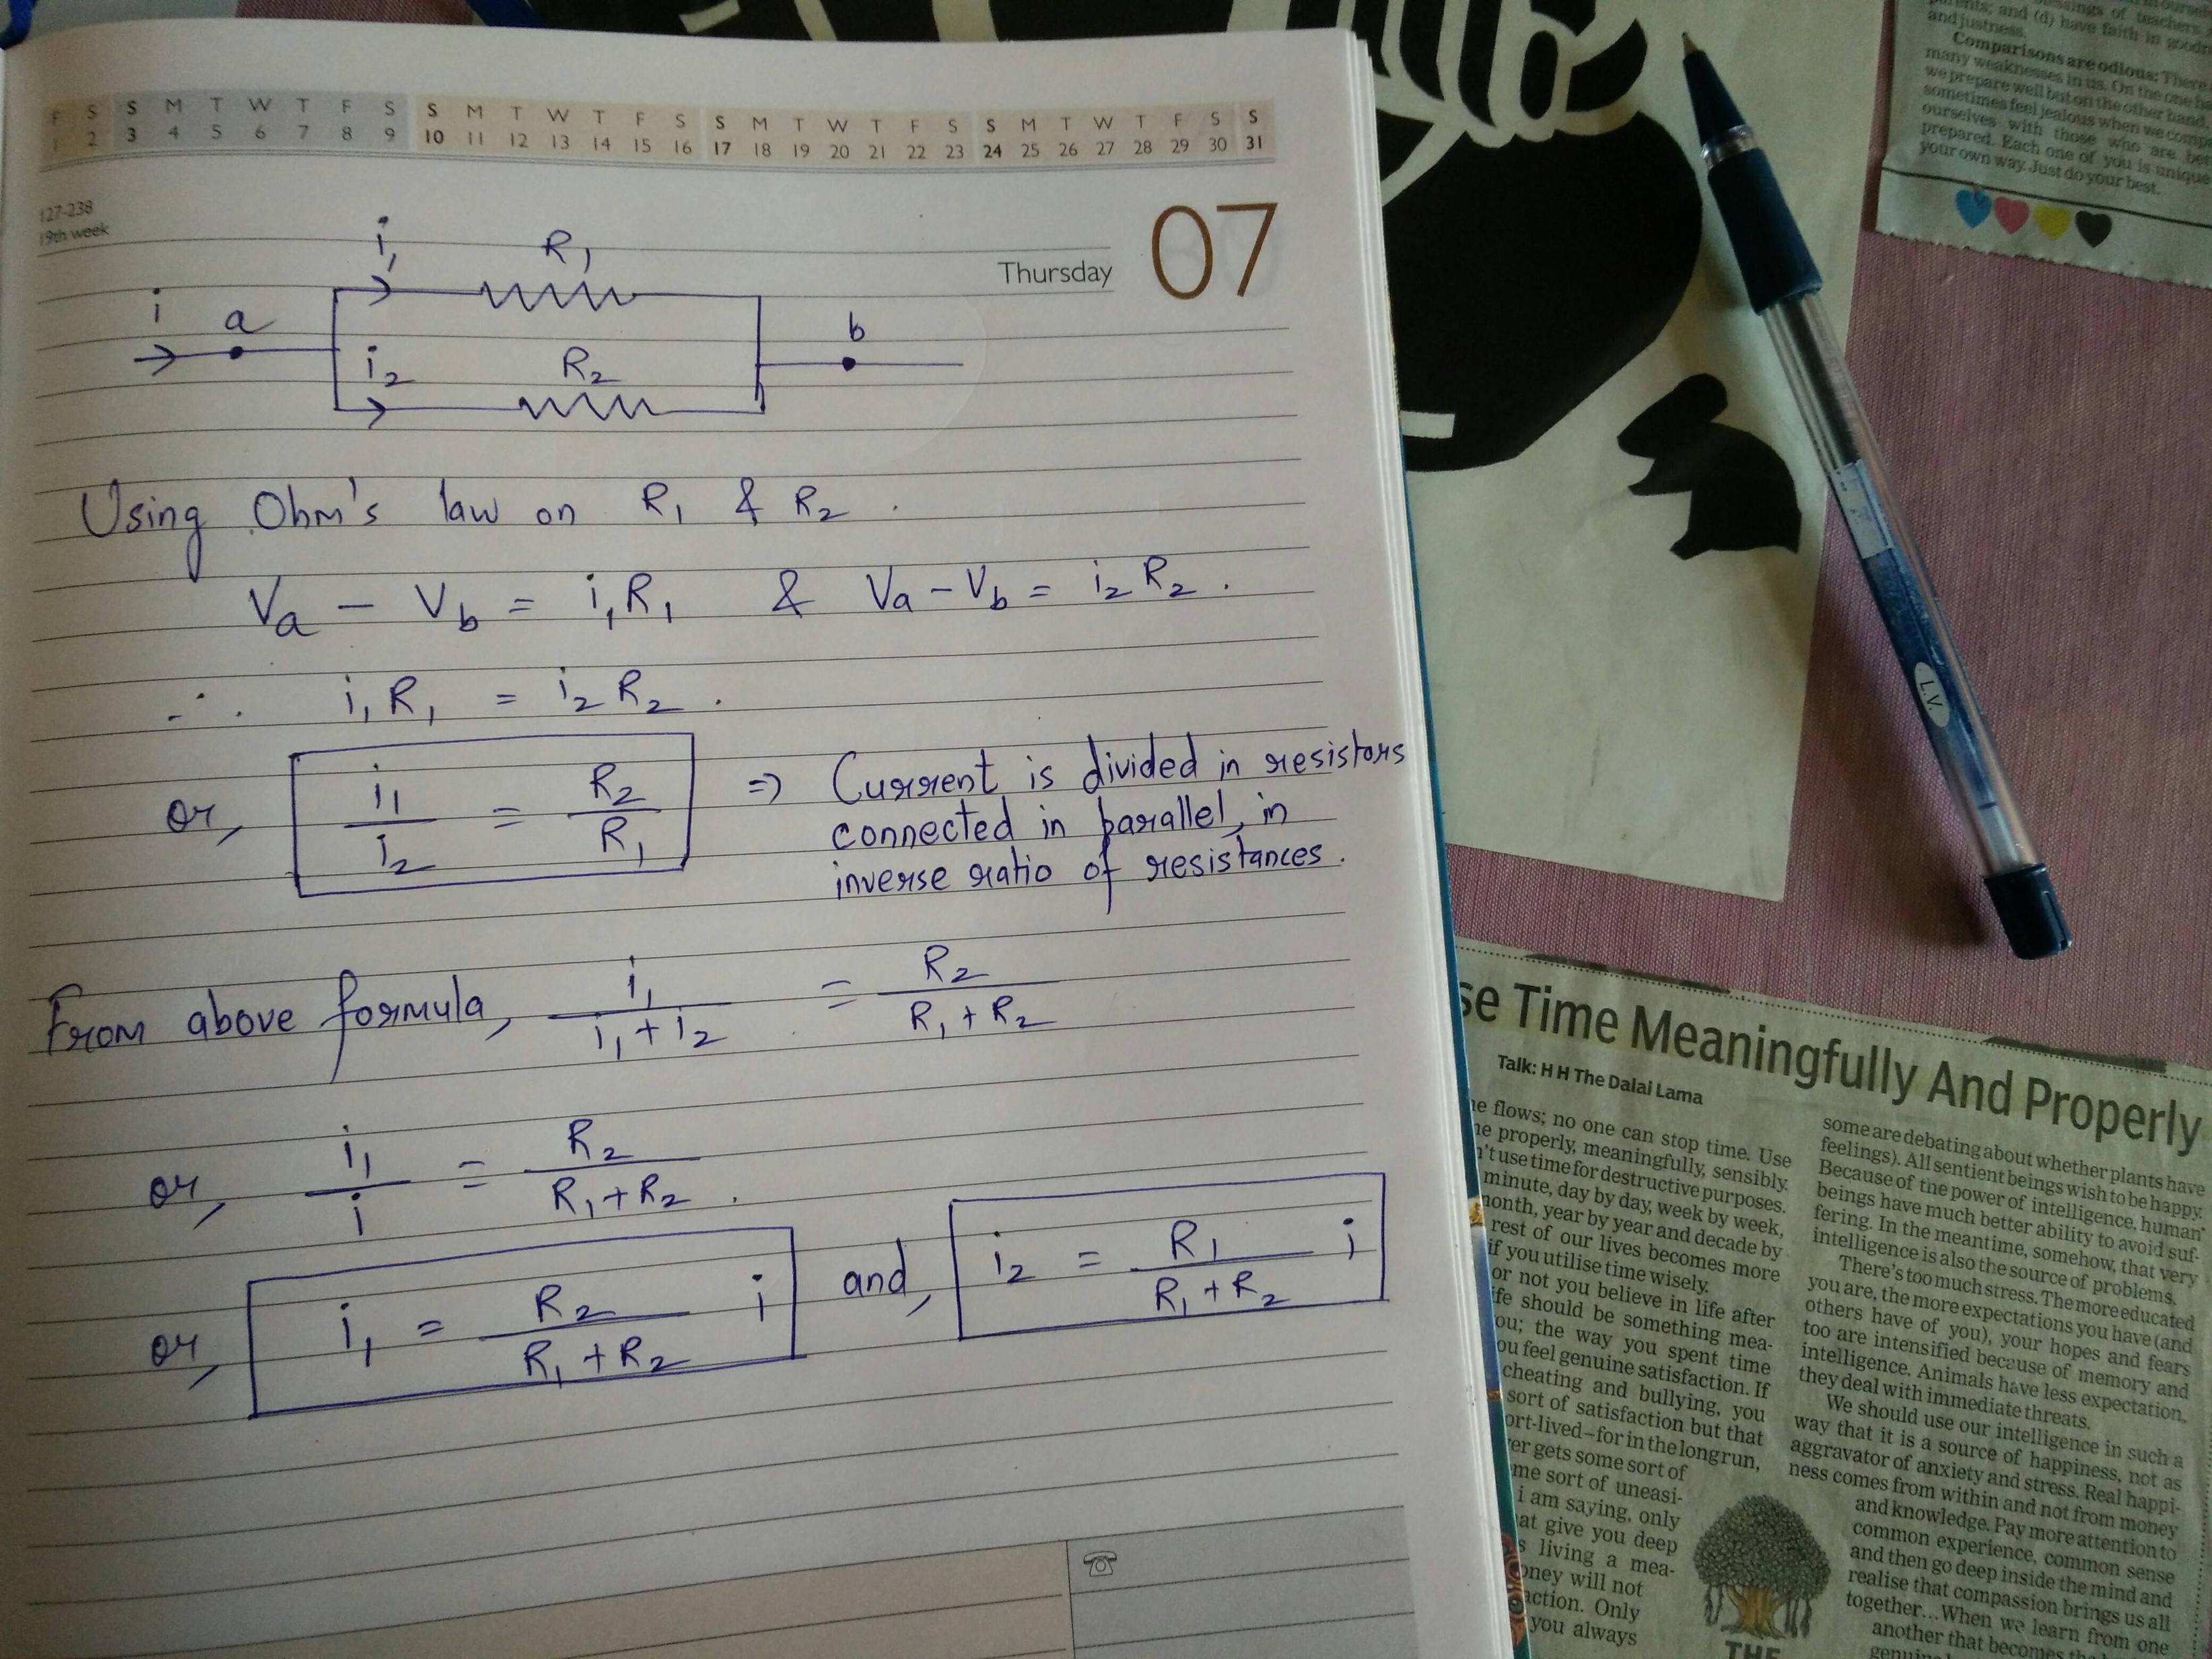 F S S M T W T F S S M T W T F S S M T W T F S S M T W T F S S
1 2 3 4 5 6 7 8 9 10 11 12 13 14 15 16 17 18 19 20 21 22 23 24 25 26 27 28 29 30 31
127-238
19th week
Thursday 07
i₁ R₁
i a b
i₂ R₂
Using Ohm's law on R₁ & R₂.
Va - Vb = i₁R₁ & Va - Vb = i₂R₂.
∴ i₁R₁ = i₂R₂.
or, i₁/i₂ = R₂/R₁ ⇒ Current is divided in resistors
connected in parallel, in
inverse ratio of resistances.
From above formula, i₁/(i₁+i₂) = R₂/(R₁+R₂)
or, i₁/i = R₂/(R₁+R₂).
or, i₁ = R₂/(R₁+R₂) i and, i₂ = R₁/(R₁+R₂) i
L.V.
and (d) have faith in
and justness.
Comparisons are odious: There
many weaknesses in us. On the one
we prepare well but on the other hand,
sometimes feel jealous when we
ourselves with those who are
prepared. Each one of you is unique
your own way. Just do your best.
se Time Meaningfully And Properly
Talk: H H The Dalai Lama
flows; no one can stop time. Use
properly, meaningfully, sensibly.
't use time for destructive purposes.
minute, day by day, week by week,
month, year by year and decade by
rest of our lives becomes more
if you utilise time wisely.
or not you believe in life after
ife should be something mea-
ou; the way you spent time
ou feel genuine satisfaction. If
cheating and bullying, you
sort of satisfaction but that
ort-lived–for in the long run,
er gets some sort of
me sort of uneasi-
i am saying, only
at give you deep
s living a mea-
oney will not
action. Only
you always
some are debating about whether plants have
feelings). All sentient beings wish to be happy.
Because of the power of intelligence, human
beings have much better ability to avoid suf-
fering. In the meantime, somehow, that very
intelligence is also the source of problems.
There's too much stress. The more educated
you are, the more expectations you have (and
others have of you), your hopes and fears
too are intensified because of memory and
intelligence. Animals have less expectation,
they deal with immediate threats.
We should use our intelligence in such a
way that it is a source of happiness, not as
aggravator of anxiety and stress. Real happi-
ness comes from within and not from money
and knowledge. Pay more attention to
common experience, common sense
and then go deep inside the mind and
realise that compassion brings us all
together... When we learn from one
another that becomes
THE